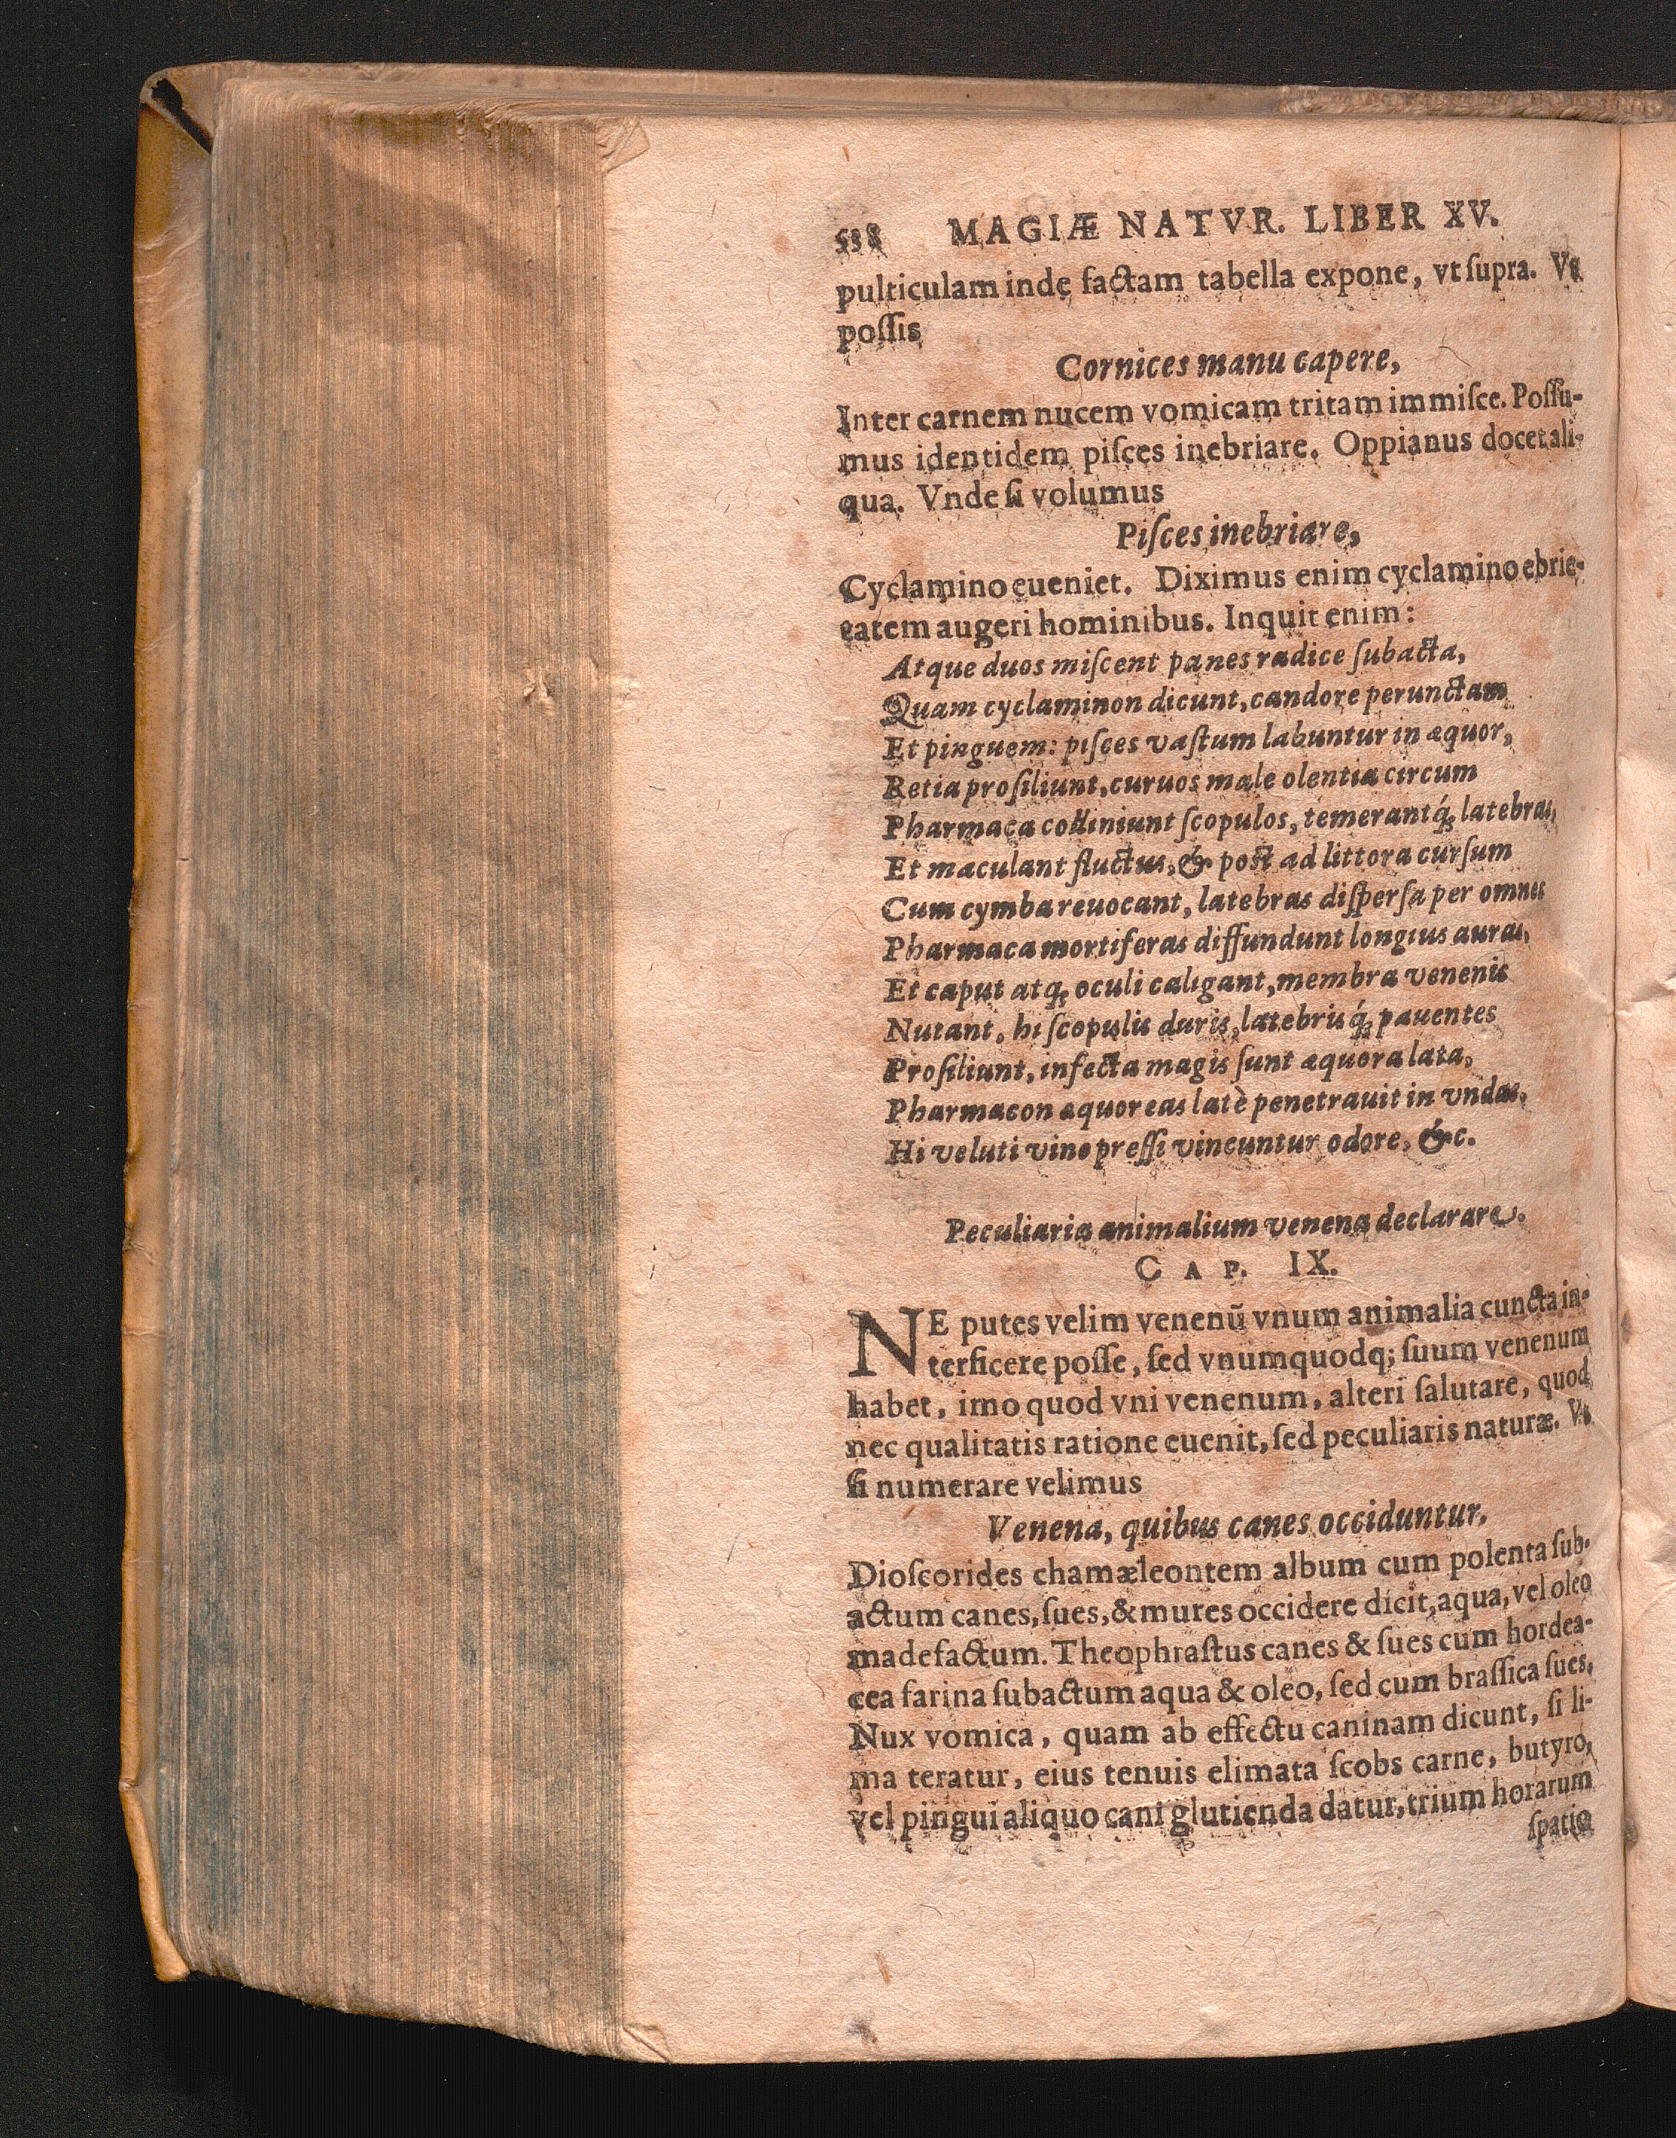 538 MAGIÆ NATVR. LIBER XV.
pulticulam inde factam tabella expone, vt ſupra. Vt
poſſis
Cornices manu capere,
Inter carnem nucem vomicam tritam immiſce. Poſſu-
mus identidem piſces inebriare. Oppianus docet ali-
qua. Vnde ſi volumus
Piſces inebriare,
Cyclamino eueniet. Diximus enim cyclamino ebrie-
tatem augeri hominibus. Inquit enim:
Atque duos miſcent panes radice ſubacta,
Quam cyclaminon dicunt, candore perunctam
Et pinguem: piſces vaſtum labuntur in æquor,
Retia proſiliunt, curuos male olentia circum
Pharmaca colliniunt ſcopulos, temerantq́; latebras,
Et maculant fluctus, & poſt ad littora curſum
Cum cymba reuocant, latebras diſperſa per omnes
Pharmaca mortiferas diffundunt longius auras,
Et caput atq; oculi caligant, membra venenis
Nutant, hi ſcopulis duris, latebrisq́; pauentes
Proſiliunt, infecta magis ſunt æquora lata,
Pharmacon æquoreas latè penetrauit in vndas,
Hi veluti vino preſſi vincuntur odore, &c.
Peculiaria animalium venena declarare.
CAP. IX.
NE putes velim venenū vnum animalia cuncta in-
terficere poſſe, ſed vnumquodq; ſuum venenum
habet, imo quod vni venenum, alteri ſalutare, quod
nec qualitatis ratione euenit, ſed peculiaris naturæ. Vt
ſi numerare velimus
Venena, quibus canes occiduntur,
Dioſcorides chamæleontem album cum polenta ſub-
actum canes, ſues, & mures occidere dicit, aqua, vel oleo
madefactum. Theophraſtus canes & ſues cum hordea-
cea farina ſubactum aqua & oleo, ſed cum braſſica ſues,
Nux vomica, quam ab effectu caninam dicunt, ſi li-
ma teratur, eius tenuis elimata ſcobs carne, butyro,
vel pingui aliquo cani glutienda datur, trium horarum
ſpatio